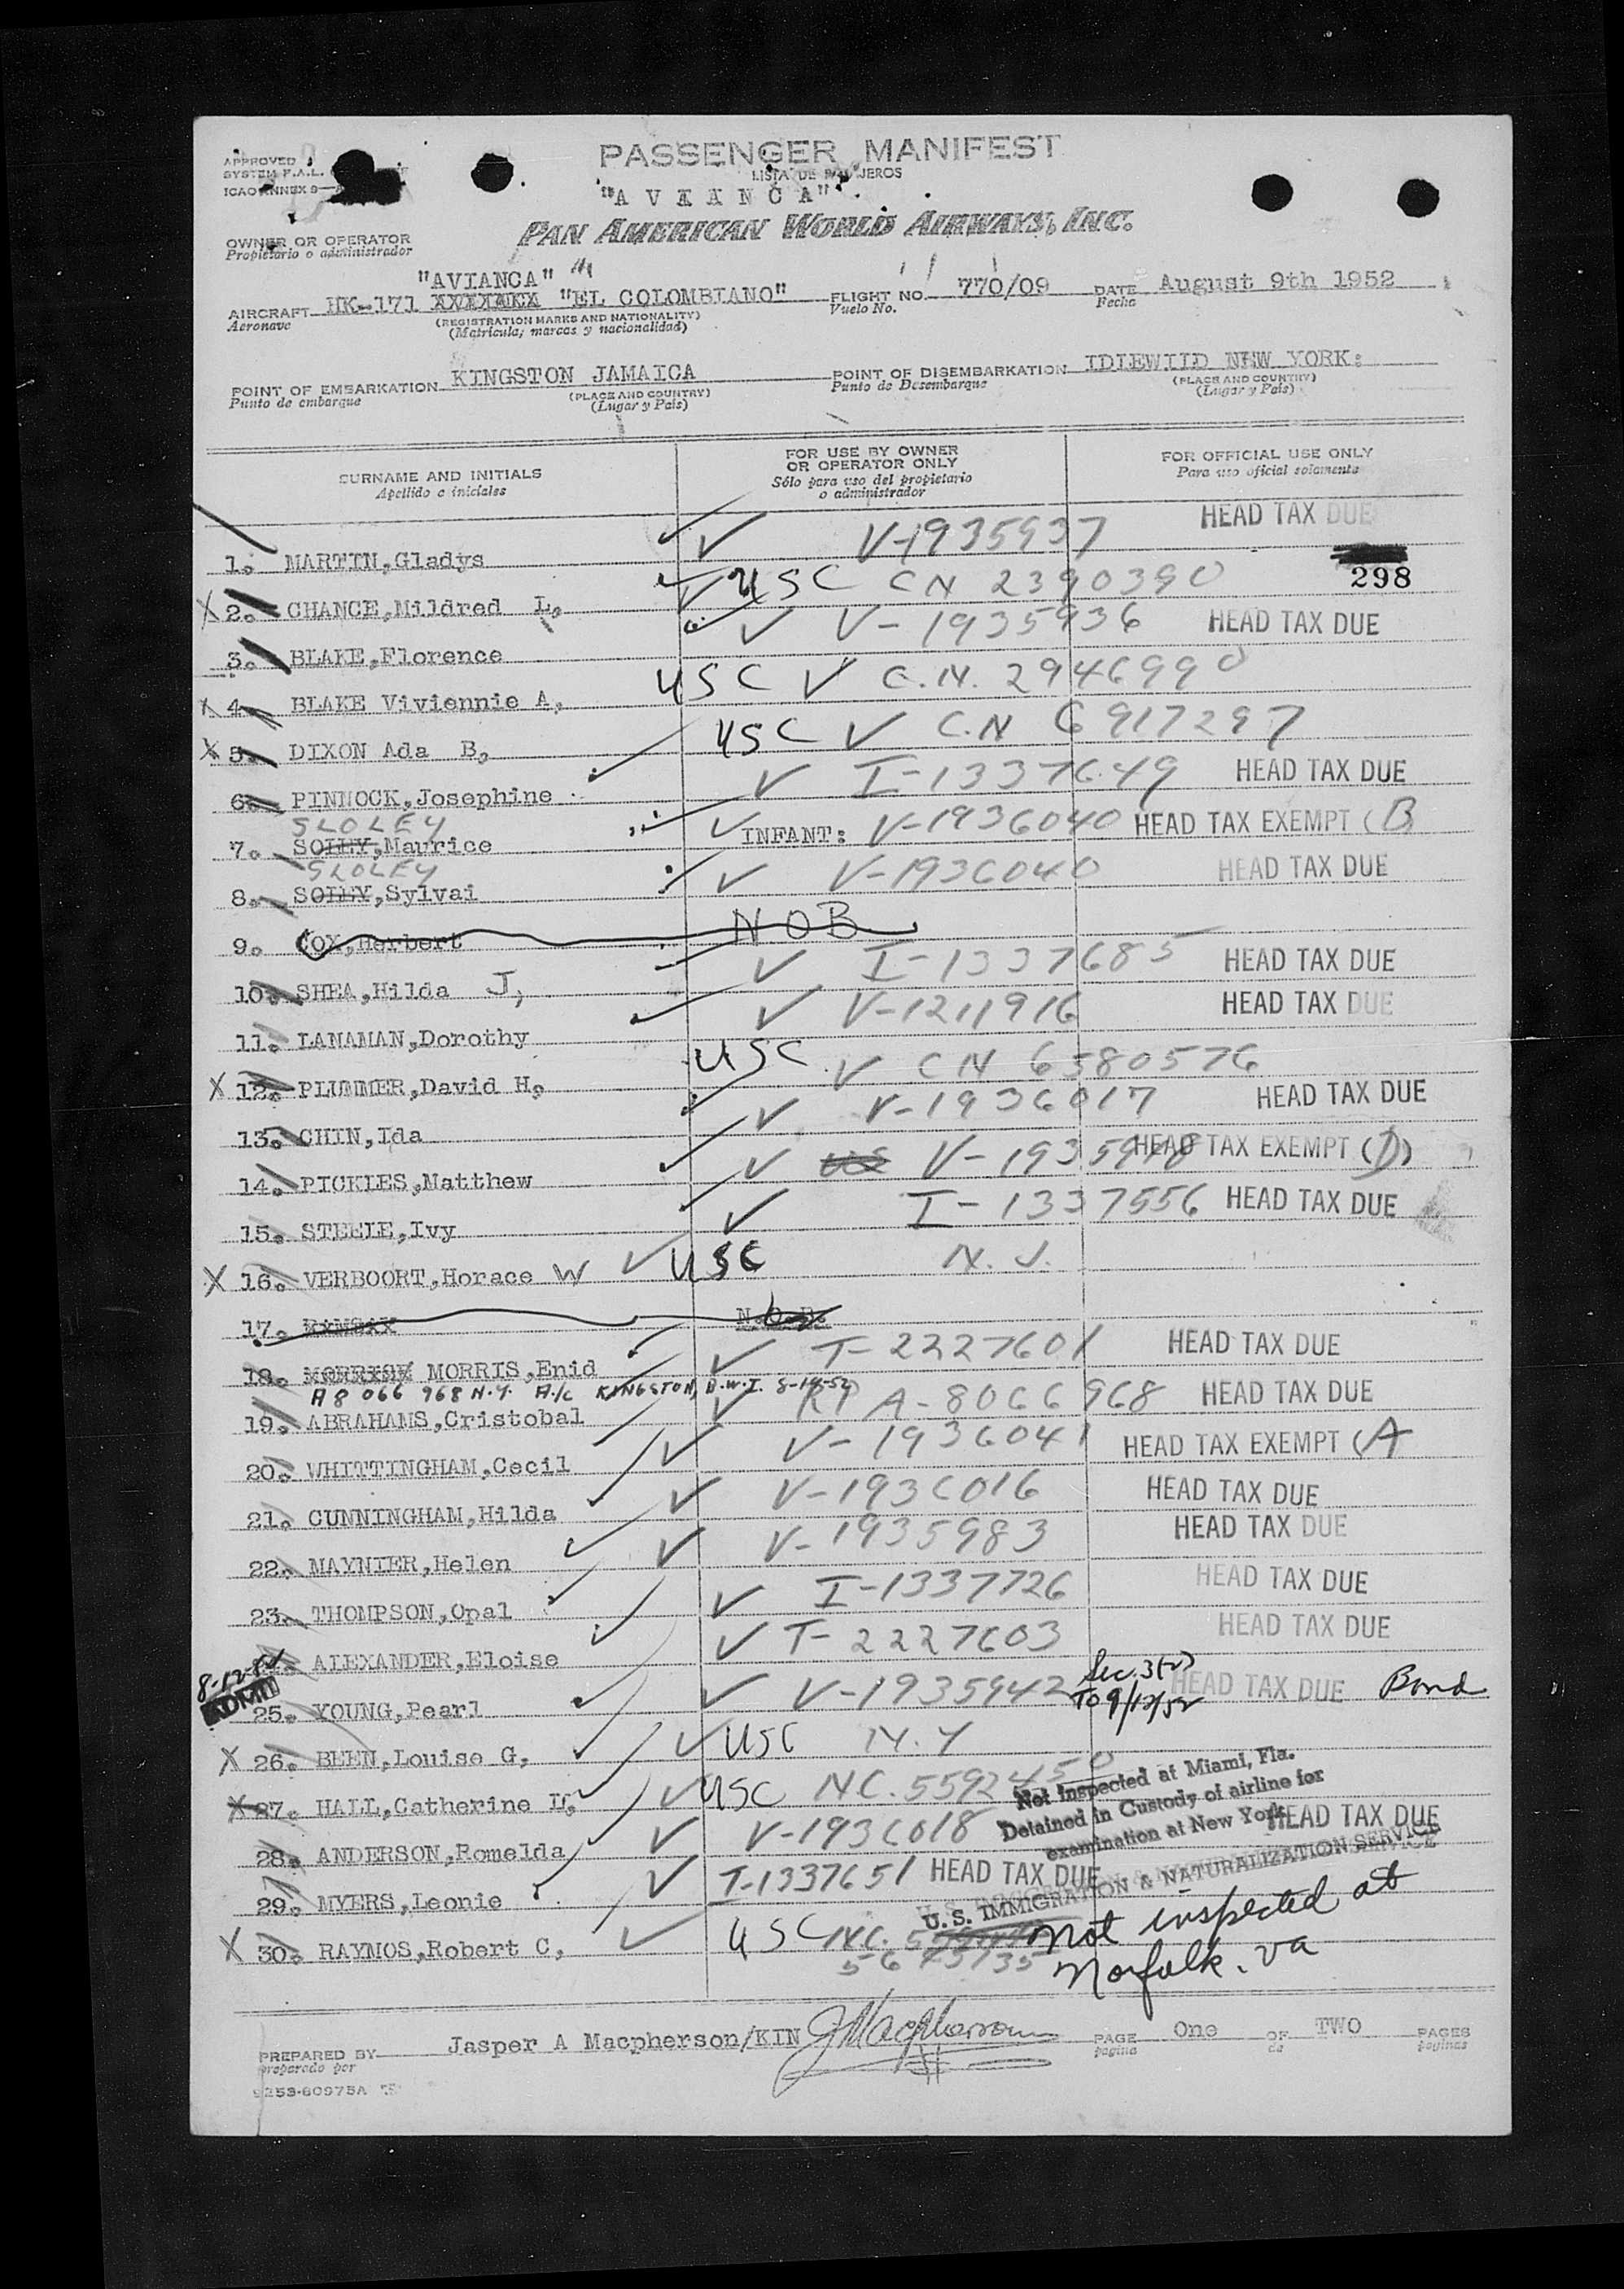 PASSENGER MANIFEST
LISTA DE PASAJEROS
APPROVED
SYSTEM F.A.L.
ICAO ANNEX 9
"AVIANCA"
PAN AMERICAN WORLD AIRWAYS, INC.
OWNER OR OPERATOR
Propietario o administrador
"AVIANCA"
AIRCRAFT HK-171 "EL COLOMBIANO" FLIGHT NO. 770/09 DATE August 9th 1952
Aeronave (REGISTRATION MARKS AND NATIONALITY) Vuelo No. Fecha
(Matricula, marcas y nacionalidad)
POINT OF EMBARKATION KINGSTON JAMAICA POINT OF DISEMBARKATION IDLEWILD NEW YORK:
Punto de embarque (PLACE AND COUNTRY) Punto de Desembarque (PLACE AND COUNTRY)
(Lugar y País) (Lugar y País)
SURNAME AND INITIALS FOR USE BY OWNER OR OPERATOR ONLY FOR OFFICIAL USE ONLY
Apellido e iniciales Sólo para uso del propietario o administrador Para uso oficial solamente
1. MARTIN,Gladys V-1935937 HEAD TAX DUE
298
2. CHANCE,Mildred L. USC CN 2390390
3. BLAKE,Florence V-1935936 HEAD TAX DUE
4. BLAKE Viviennie A. USC C.N. 2946990
5. DIXON Ada B. USC C.N 6917297
6. PINNOCK,Josephine I-1337649 HEAD TAX DUE
SLOLEY
7. SOLEY,Maurice INFANT: V-1936040 HEAD TAX EXEMPT (B)
SLOLEY
8. SOLEY,Sylvai V-1936040 HEAD TAX DUE
9. COX,Herbert NOB
10. SHEA,Hilda J, I-1337685 HEAD TAX DUE
11. LANAMAN,Dorothy V-1211916 HEAD TAX DUE
12. PLUMMER,David H. USC CN 6580576
13. CHIN,Ida V-1936017 HEAD TAX DUE
14. PICKLES,Matthew V-1935948 HEAD TAX EXEMPT (D)
15. STEELE,Ivy I-1337556 HEAD TAX DUE
16. VERBOORT,Horace W USC N.J.
17. N.O.B.
18. MORRIS,Enid T-2227601 HEAD TAX DUE
A8 066 968 N.Y. A/c KINGSTON, B.W.I. 8-14-52
19. ABRAHAMS,Cristobal RP A-8066968 HEAD TAX DUE
20. WHITTINGHAM,Cecil V-1936041 HEAD TAX EXEMPT (A
21. CUNNINGHAM,Hilda V-1936016 HEAD TAX DUE
22. MAYNIER,Helen V-1935983 HEAD TAX DUE
23. THOMPSON,Opal I-1337726 HEAD TAX DUE
ALEXANDER,Eloise T-2227603 HEAD TAX DUE
8-12-52
ADMIT
25. YOUNG,Pearl V-1935942 Sec. 3(2) TO 9/12/52 HEAD TAX DUE Bond
26. BEEN,Louise G, USC N.Y
27. HALL,Catherine L. USC NC. 5592450
Not Inspected at Miami, Fla.
Detained in Custody of airline for
examination at New York
28. ANDERSON,Romelda V-1936018 HEAD TAX DUE
29. MYERS,Leonie I-1337651 HEAD TAX DUE
U.S. IMMIGRATION & NATURALIZATION SERVICE
30. RAYMOS,Robert C, USC NC.
Not inspected at
Norfolk. Va
PREPARED BY Jasper A Macpherson/KIN JMacpherson PAGE One OF TWO PAGES
preparado por pagina de paginas
9253-60975A